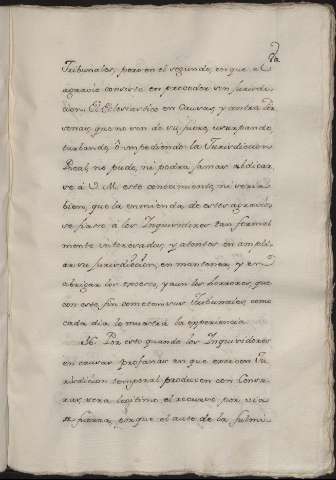 Tribunales, pero en el segundo, en que el
agravio consiste en proceder sin Jurisdi-
cion el Eclesiastico en Causas, y contra Per-
sonas, que no son de su fuero, usurpando,
turbando, ò impediendo la Jurisdiccion
Real, no pudo, ni podrá jamas abdicar-
se á V. M. este conocimiento, ni seria
bien, que la enmienda de estos agravios
se fiase á los Inquisidores tan formal
mente interesados, y atentos en ampli-
ar su Jurisdiccion, en mantener, y en
abrigar los excesos, y aun los horrores, que
con este fin cometen sus Tribunales, como
cada dia lo muestra la experiencia.
Por esto quando los Inquisidores
en causas profanas en que exercen Ju-
risdicion temporal proceden con Censu-
ras sera legitimo el recurso por via
de fuerza, porque el auto de la fulmi-